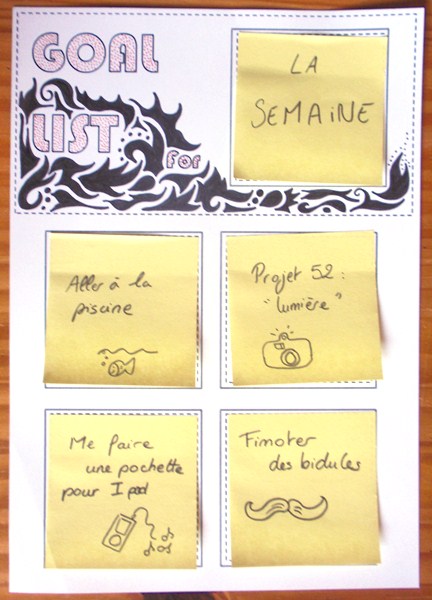 GOAL
LIST for
LA
SEMAINE
Aller à la
piscine
Projet 52 :
"lumière"
Me faire
une pochette
pour I pod
Fimoter
des bidules